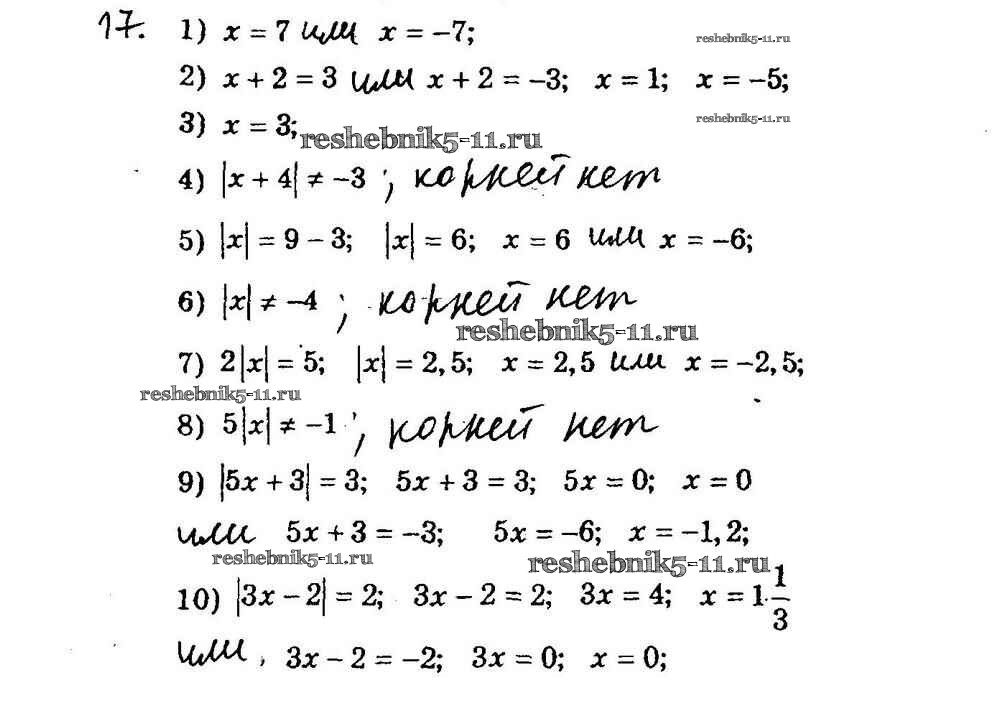 17. 1) x = 7 или x = −7; reshebnik5-11.ru
2) x + 2 = 3 или x + 2 = −3; x = 1; x = −5;
3) x = 3; reshebnik5-11.ru reshebnik5-11.ru
4) |x + 4| ≠ −3 ; корней нет
5) |x| = 9 − 3; |x| = 6; x = 6 или x = −6;
6) |x| ≠ −4 ; корней нет
reshebnik5-11.ru
7) 2|x| = 5; |x| = 2,5; x = 2,5 или x = −2,5;
reshebnik5-11.ru
8) 5|x| ≠ −1 ; корней нет
9) |5x + 3| = 3; 5x + 3 = 3; 5x = 0; x = 0
или 5x + 3 = −3; 5x = −6; x = −1,2;
reshebnik5-11.ru reshebnik5-11.ru
10) |3x − 2| = 2; 3x − 2 = 2; 3x = 4; x = 1 1/3
или, 3x − 2 = −2; 3x = 0; x = 0;